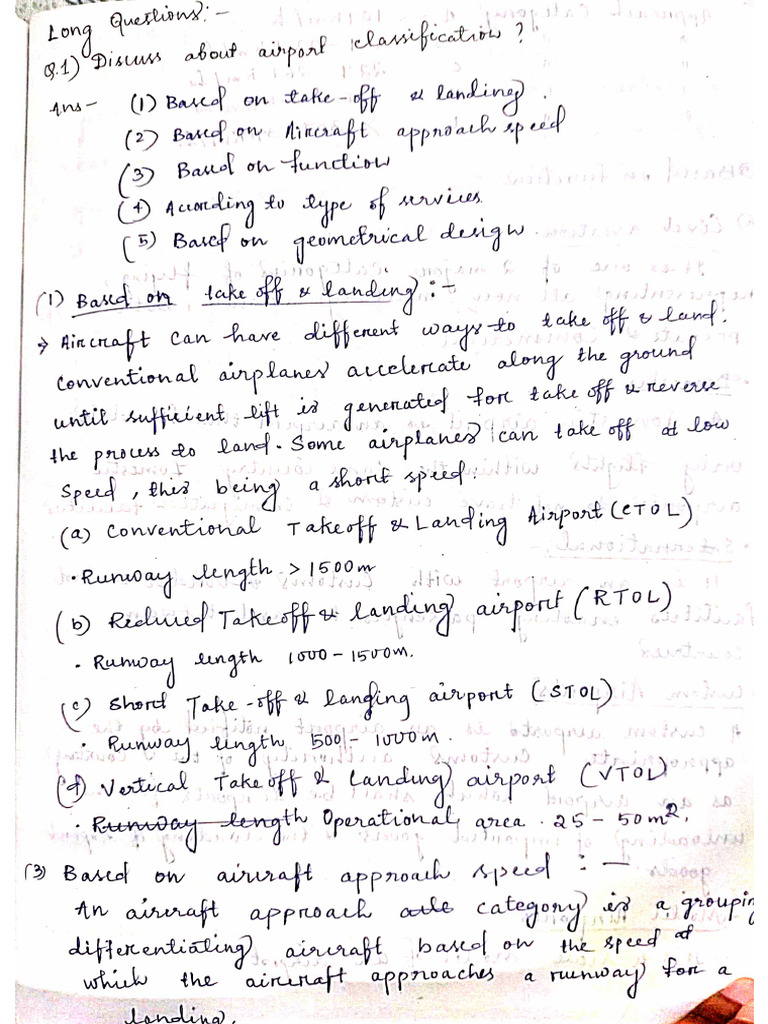 Long Questions:-
Q.1) Discuss about airport classification?
Ans- (1) Based on take-off & landing.
(2) Based on Aircraft approach speed
(3) Based on function
(4) According to type of services.
(5) Based on geometrical design.
(1) Based on take off & landing :-
→ Aircraft can have different ways to take off & land.
Conventional airplanes accelerate along the ground
until sufficient lift is generated for take off & reverse
the process to land. Some airplanes can take off at low
speed, this being a short speed.
(a) Conventional Takeoff & Landing Airport (CTOL)
• Runway length > 1500m
(b) Reduced Takeoff & landing airport (RTOL)
• Runway length 1000-1500m.
(c) Short Take-off & landing airport (STOL)
• Runway length 500 - 1000m.
(d) Vertical Takeoff & Landing airport (VTOL)
• Runway length Operational area . 25 - 50m².
(3) Based on aircraft approach speed : —
An aircraft approach category is a grouping
differentiating aircraft based on the speed at
which the aircraft approaches a runway for a
landing.